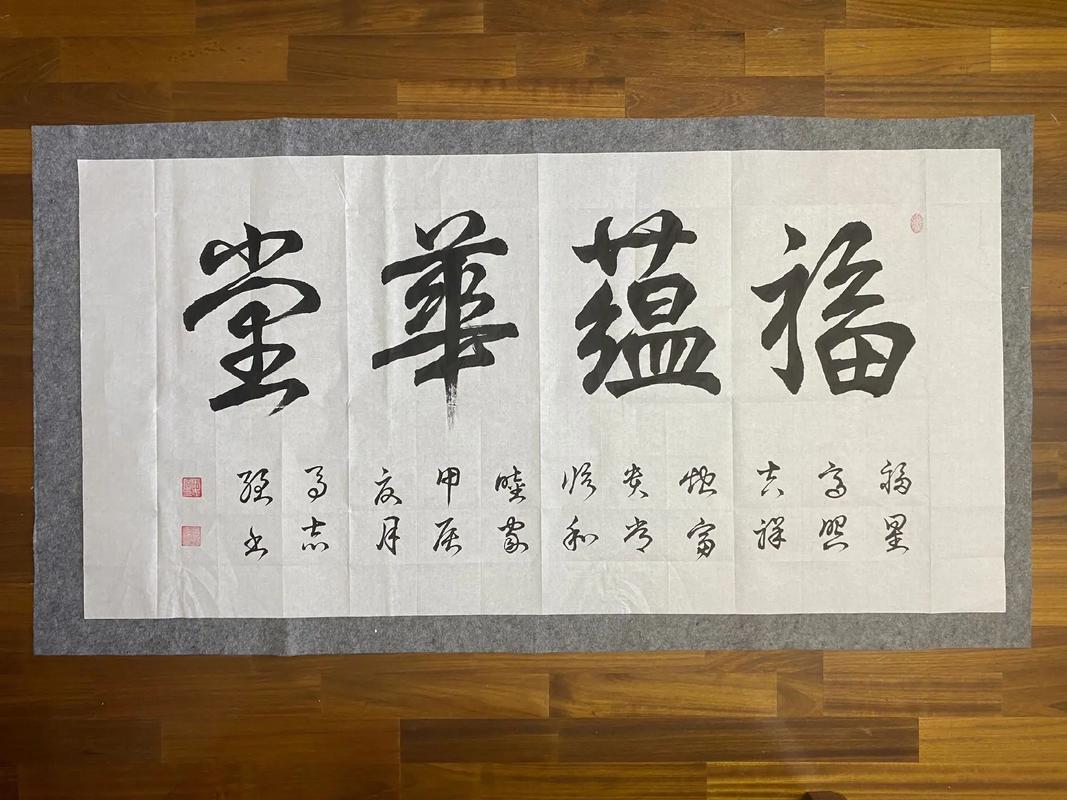 福蘊華堂
福星
高照
吉祥
地富
貴常
臨和
睦家
甲辰
夏月
馬志
強書